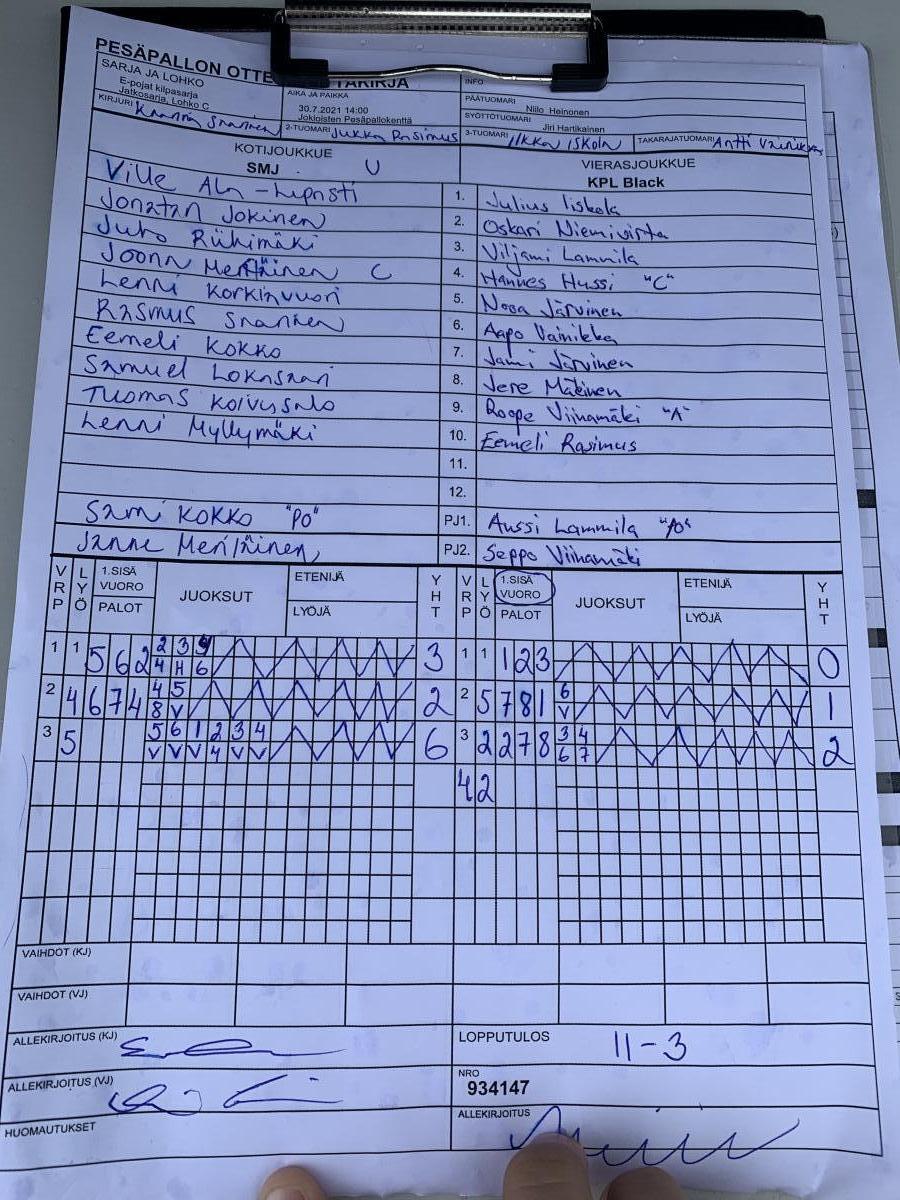 PESÄPALLON OTTE TAKIRJA
SARJA JA LOHKO
E-pojat kilpasarja
Jatkosarja, Lohko C
KIRJURI
AIKA JA PAIKKA
30.7.2021 14:00
Jokioisten Pesäpallokenttä
2-TUOMARI Jukka Rasimus
INFO
PÄÄTUOMARI Niilo Heinonen
SYÖTTÖTUOMARI Jiri Hartikainen
3-TUOMARI Ilkka Iskola TAKARAJATUOMARI Antti Vainikka
KOTIJOUKKUE
SMJ U
VIERASJOUKKUE
KPL Black
Ville Ala-Lipasti 1. Julius Iiskola
Jonatan Jokinen 2. Oskari Niemivirta
Juho Riihimäki 3. Viljami Lammila
Joona Meriläinen C 4. Hannes Hussi "C"
Lenni Korkiavuori 5. Nooa Järvinen
Rasmus Snanen 6. Aapo Vainikka
Eemeli Kokko 7. Jami Järvinen
Samuel Lokasaari 8. Jere Mäkinen
Tuomas Koivusalo 9. Roope Viinamäki "A"
Lenni Myllymäki 10. Eemeli Rasimus
11.
12.
Sami Kokko "PO" PJ1. Anssi Lammila "PO"
Janne Meriläinen PJ2. Seppo Viinamäki
VRP LYÖ 1.SISÄ VUORO PALOT JUOKSUT ETENIJÄ LYÖJÄ YHT VRP LYÖ 1.SISÄ VUORO PALOT JUOKSUT ETENIJÄ LYÖJÄ YHT
1 1 5 6 2 2 3 9 3 1 1 1 2 3 0
4 H 6
2 4 6 7 4 4 5 2 2 5 7 8 1 6 1
8 V V
3 5 5 6 1 2 3 4 6 3 2 2 7 8 3 4 2
V V V 4 V V 6 7
4 2
VAIHDOT (KJ)
VAIHDOT (VJ)
ALLEKIRJOITUS (KJ)
LOPPUTULOS 11-3
ALLEKIRJOITUS (VJ)
NRO
934147
HUOMAUTUKSET
ALLEKIRJOITUS